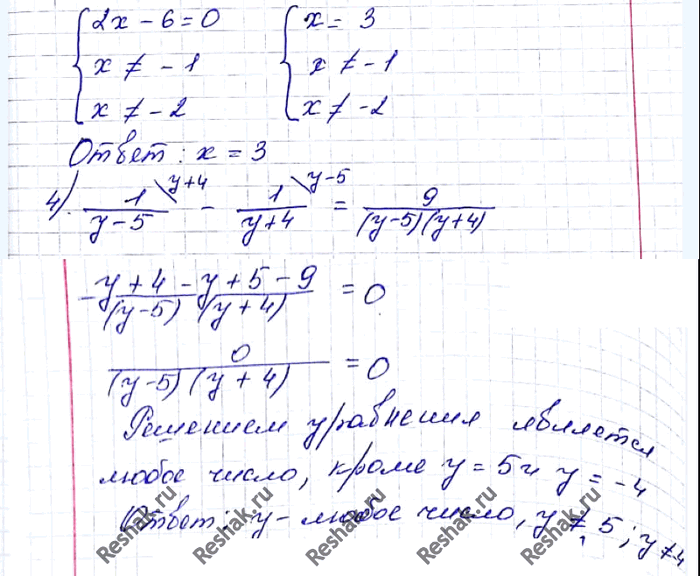 2x - 6 = 0   x = 3
x ≠ - 1   x ≠ - 1
x ≠ - 2   x ≠ - 2
Ответ: x = 3
4). 1/(y-5) \y+4 - 1/(y+4) \y-5 = 9/((y-5)(y+4))
-(y + 4 - y + 5 - 9)/((y-5)(y+4)) = 0
0/((y-5)(y+4)) = 0
Решением уравнения является
любое число, кроме y = 5 и y = -4
Ответ: y - любое число, y ≠ 5; y ≠ 4
Reshak.ru Reshak.ru Reshak.ru Reshak.ru Reshak.ru